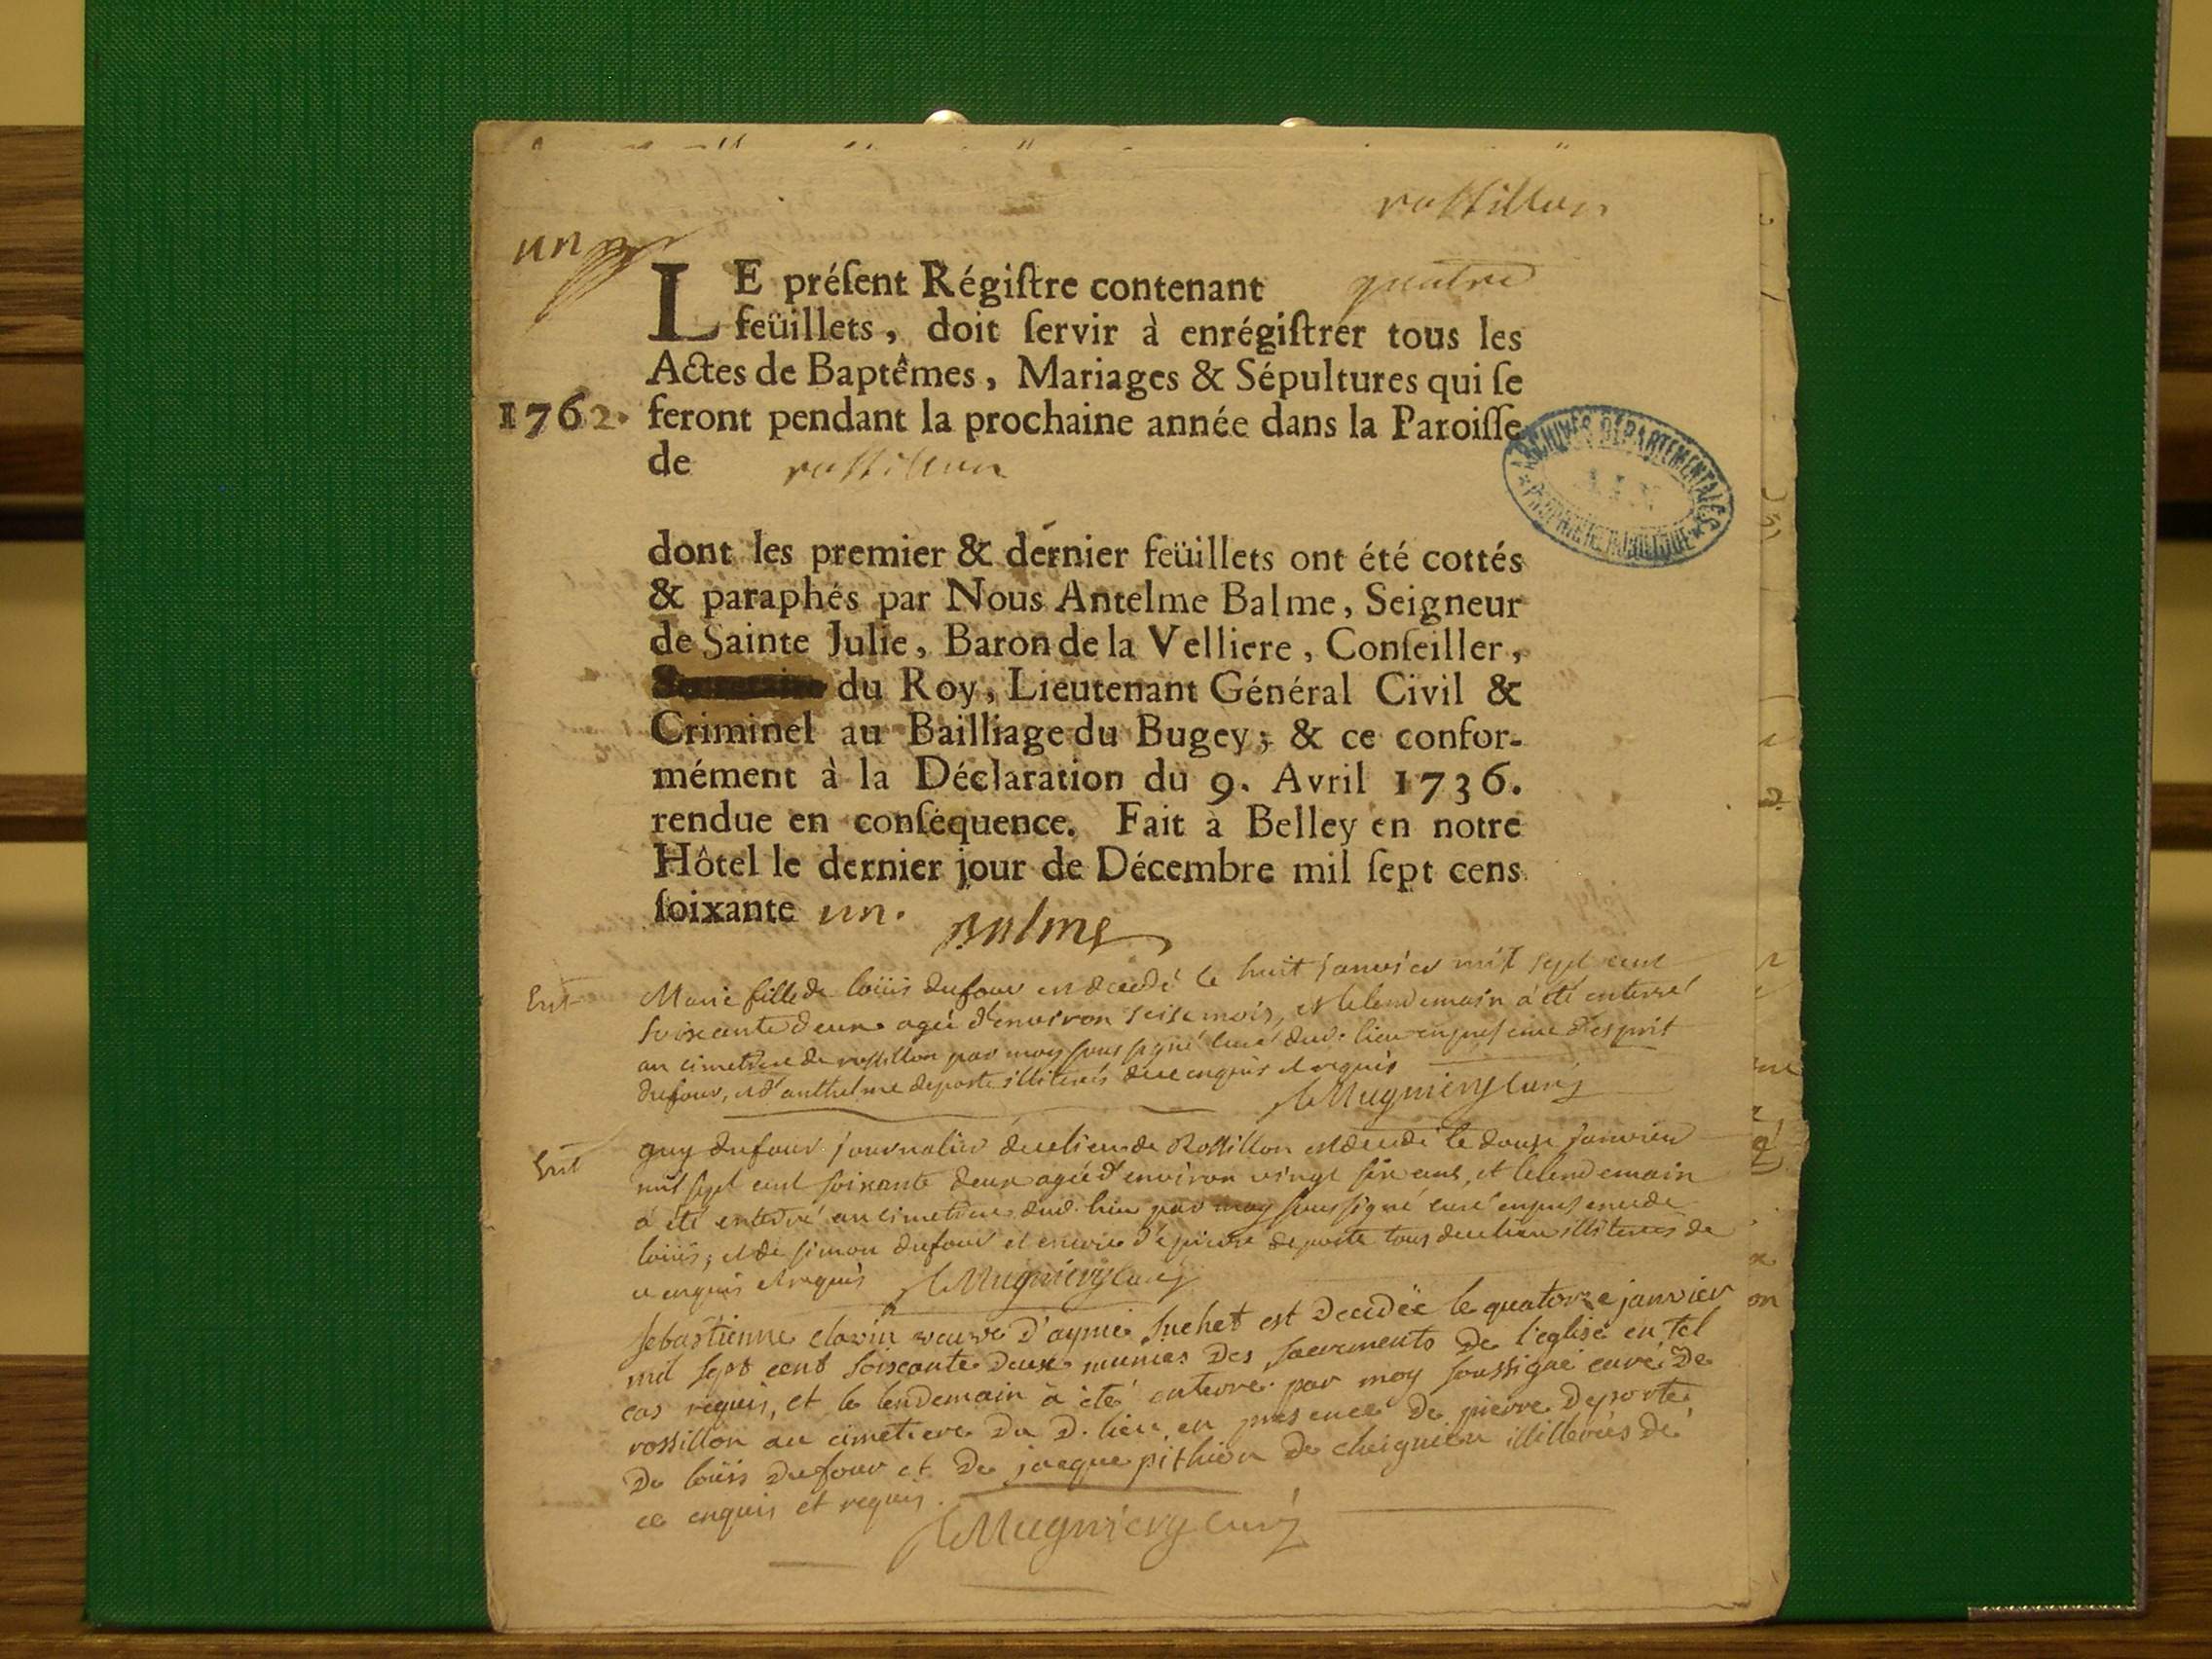 rossillon
un
LE préſent Régiſtre contenant quatre
feüillets, doit ſervir à enrégiſtrer tous les
Actes de Baptêmes, Mariages & Sépultures qui ſe
1762. feront pendant la prochaine année dans la Paroiſſe
de rossillon
ARCHIVES DÉPARTEMENTALES
AIN
PROPRIÉTÉ PUBLIQUE
dont les premier & dernier feüillets ont été cottés
& paraphés par Nous Antelme Balme, Seigneur
de Sainte Julie, Baron de la Velliere, Conſeiller,
du Roy, Lieutenant Général Civil &
Criminel au Bailliage du Bugey; & ce confor-
mément à la Déclaration du 9. Avril 1736.
rendue en conſéquence. Fait à Belley en notre
Hôtel le dernier jour de Décembre mil ſept cens
ſoixante un. Balme
Ent Marie fille de loüis dufour est decedé le huit janvier mil sept cent
soixante deux agée d'environ seise mois, et le lendemain a été enterré
au cimetiere de rossillon par moy soussigné curé dud. lieu en presence d'esprit
dufour, et d'anthelme deporte illiterés de ce enquis et requis
Mugniery curé
Ent guy dufour journalier du lieu de Rossillon est decedé le douse janvier
mil sept cent soixante deux agé d'environ vingt six ans, et le lendemain
a été enterré au cimetiere dud. lieu par moy soussigné curé en presence de
loüis, et de simon dufour et encore de pierre deporte tous du lieu illiterés de
ce enquis et requis Mugniery curé
sebastienne clavin veuve d'aymé suchet est decedée le quatorze janvier
mil sept cent soixante deux munies des sacrements de l'eglise en tel
cas requis, et le lendemain à été enterre par moy soussigné curé de
rossillon au cimetiere du d. lieu, en presence de pierre deporte
de loüis dufour et de jacque pithion de cheignieu illiterés de
ce enquis et requis.
Mugniery curé